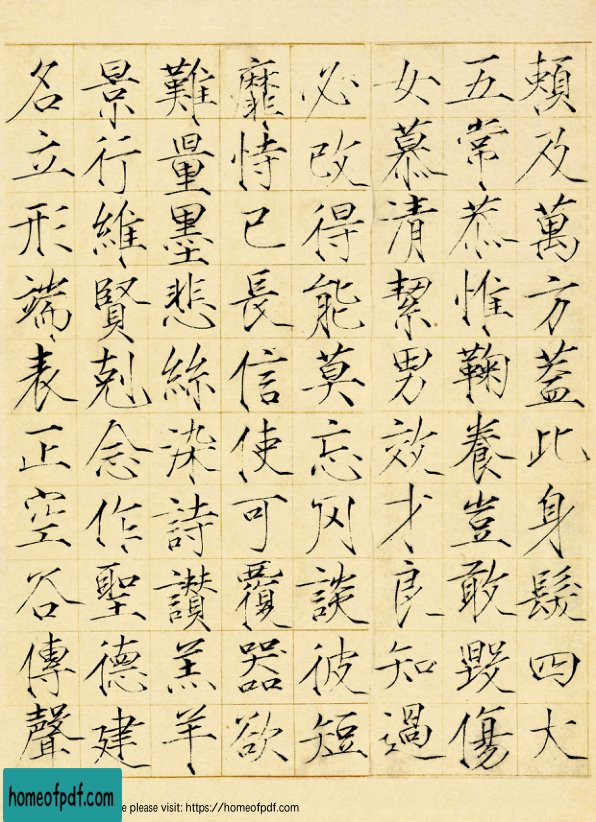 頼及萬方蓋此身髮四大
五常恭惟鞠養豈敢毀傷
女慕清絜男效才良知過
必改得能莫忘罔談彼短
靡恃己長信使可覆器欲
難量墨悲絲染詩讚羔羊
景行維賢剋念作聖德建
名立形端表正空谷傳聲
homeofpdf.com
please visit: https://homeofpdf.com